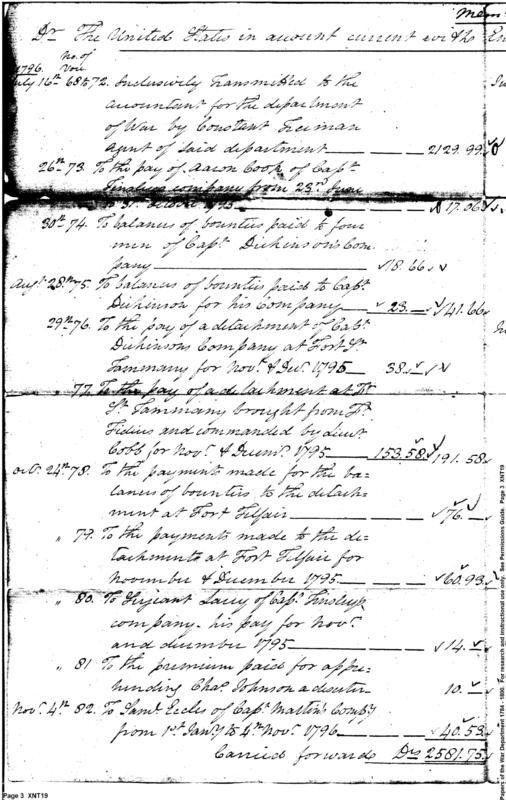 Mem
Dr. The United States in account current with the En
No. of
1796. Vou.
July 16th 68 to 72. Inclusively Transmitted to the
accountant for the department
of War by Constant Freeman
agent of said department 2129.99
26th 73. To the pay of Aaron Cook of Capt.
Tinsleys company from 23rd June
to 31st 1795 17.06
30th 74. To balances of bounties paid to four
men of Capt. Dickinsons Com
pany 18.66
Augt 28th 75. To balances of bounties paid to Capt.
Dickinson for his Company 23.— 41.66
29th 76. To the pay of a detachment of Capt.
Dickinsons Company at Fort St
Tammany for Novr. & Decr. 1795 38.
77. To the pay of a detachment at Ft
St. Tammany brought from Ft.
Fidius and commanded by Lieut
Cobb for Novr. & Decemr. 1795 153.58 191.58
Octr. 24th 78. To the payments made for the ba-
lances of bounties to the detach-
ment at Fort Telfair 76.
" 79. To the payments made to the de-
tachments at Fort Telfair for
November & December 1795 60.93
" 80. To Serjeant Lacey of Capt. Tinsleys
company his pay for Novr.
and december 1795 14.—
" 81 To the premium paid for appre-
hending Chas. Johnson a deserter 10.
Novr. 4th 82. To Saml. Eccles of Capt Martins Compy
from 1st Jany to 4th Novr. 1796 40.53
Carried forwards Drs 2581.75
Page 3 XNT19
Papers of the War Department 1784 - 1800. For research and instructional use only. See Permissions Guide. Page 3 XNT19